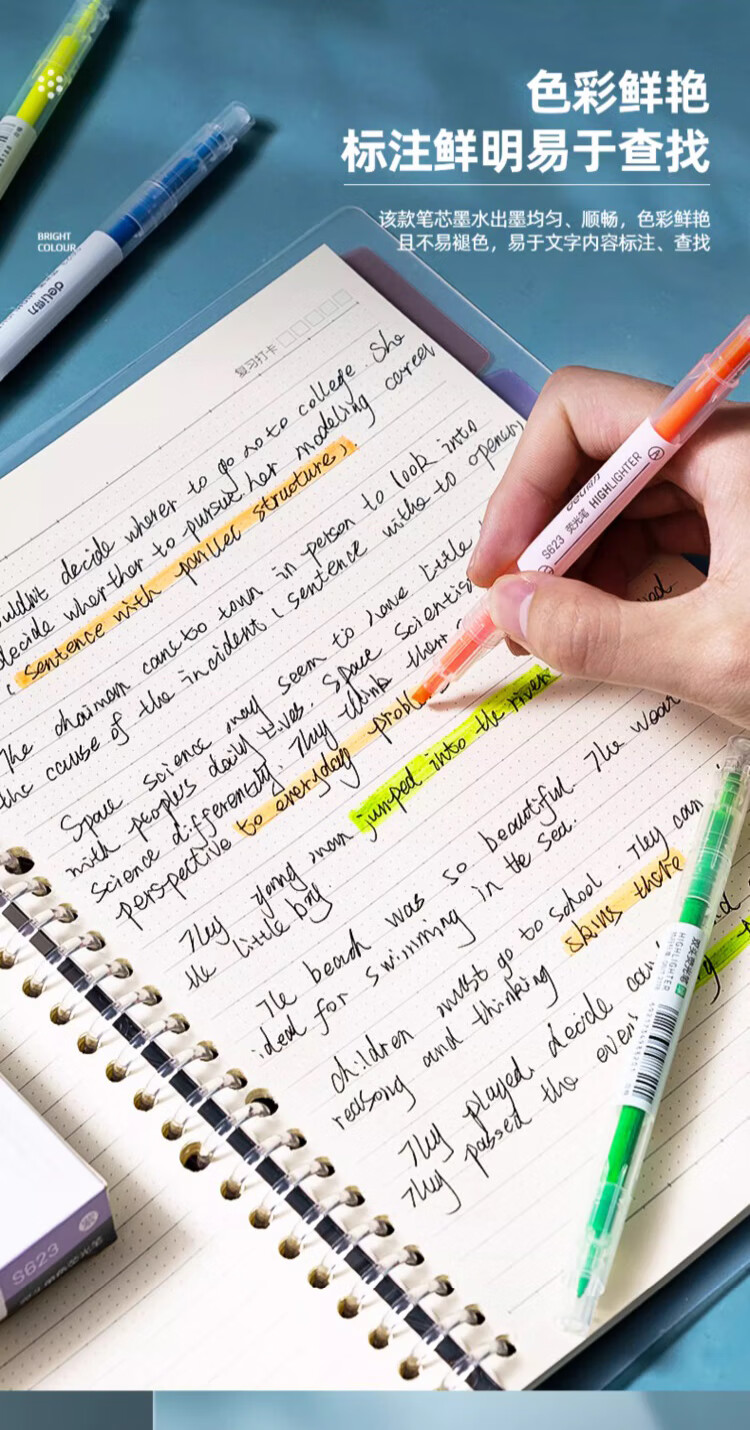 色彩鲜艳
标注鲜明易于查找
该款笔芯墨水出墨均匀、顺畅，色彩鲜艳
且不易褪色，易于文字内容标注、查找
BRIGHT
COLOUR
deli
复习打卡
decide wherer to go noto college. She
decide whether to pursue her modeling career
(sentence with parallel structure).
The chairman came to town in person to look into
the cause of the incident (sentence
Space science may seem to have little
with people's daily lives. Space Scientis
science differently. They think
perspective to everyday probl
They young man jumped into the river
the little boy.
The beach was so beautiful. The
ideal for swimming in the sea.
children must go to school. They can
reasong and thinking skins there
They played. decide
They passed the
S623 荧光笔 HIGHLIGHTER
HIGHLIGHTER
S623